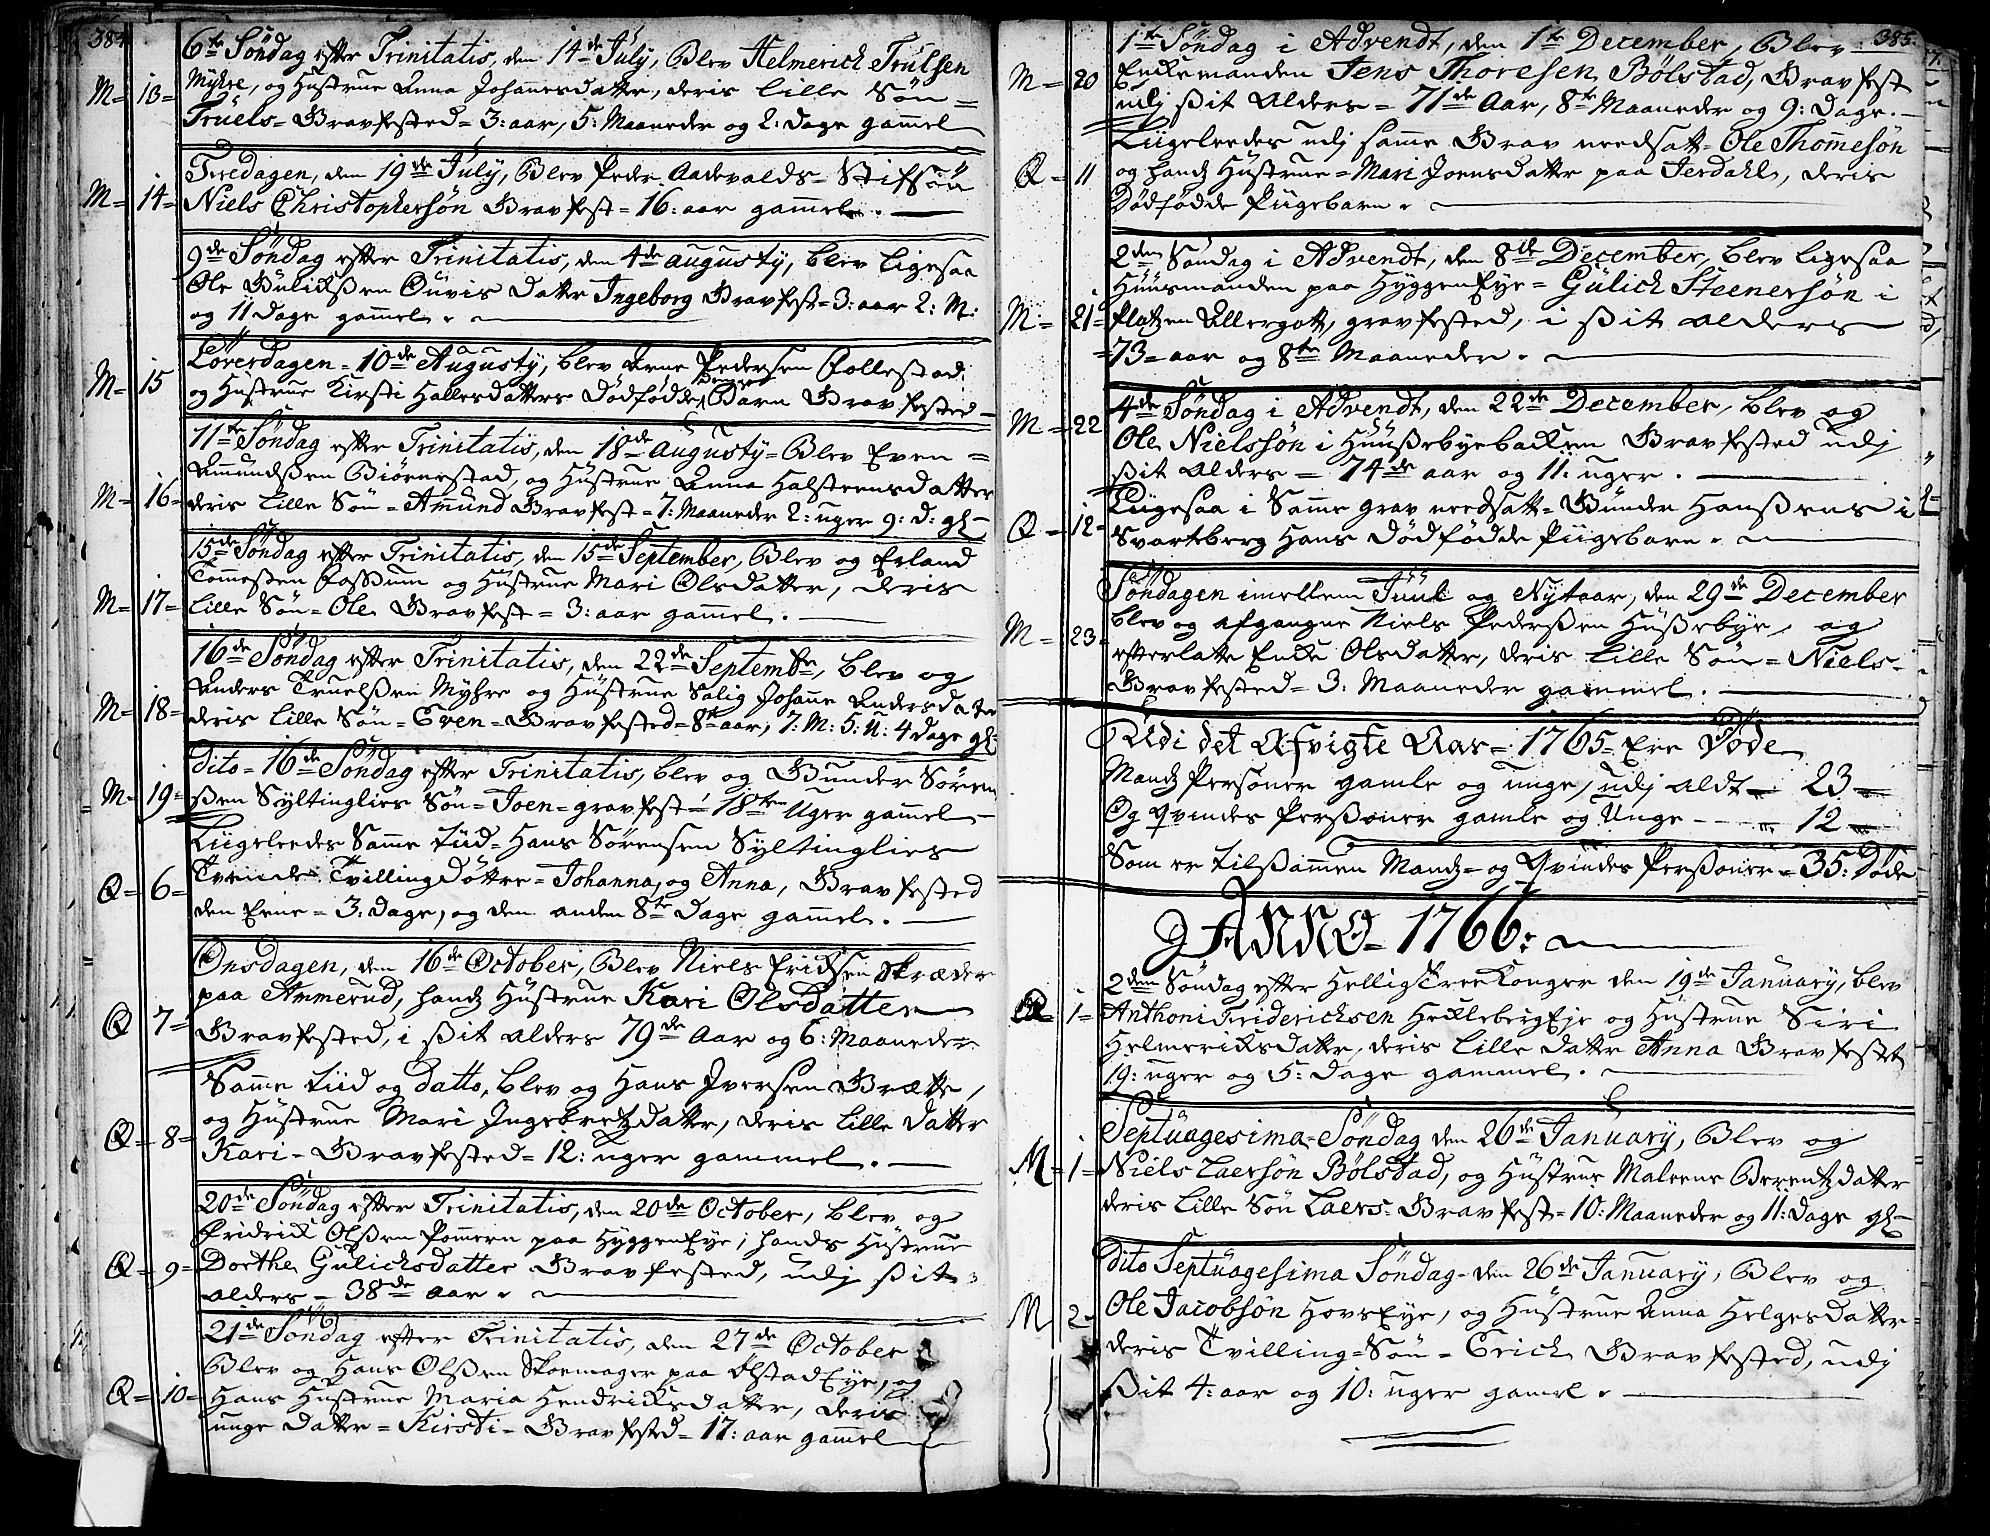 384
6te Söndag efter Trinitatis, den 14de July, Blev Helmerich Trulsen
M= 13= Myhre, og Hustrue Anna Johannesdatter, deris Lille Sön=
Truels= Gravfested= 3: aar, 5: Maaneder og 2: dage gamel
Tiredagen, den 19de July, Blev Peder Aadevalds= Stifsön
M= 14= Niels Christophersön Gravfest= 16: aar gamel.
9de Söndag efter Trinitatis, den 4de augusty, blev Ligesaa
Ole Gulichssen datter Ingeborg Gravfest= 3: aar 2: M:
og 11 dage gamel.
Löverdagen= 10de Augusty, blev Arne Pedersen Follestad
M= 15 og Hustrue Kirsti Hallesdatters Dödfödde Barn Gravfested
11te Söndag efter Trinitatis, den 18de augusty= Blev Even=
Amundssen Biörnestad, og Hustrue Anna Halsteensdatter
M= 16= deris Lille Sön= Amund Gravfest= 7: Maaneder 2: uger 9: d: gl
15de Söndag efter Trinitatis, den 15de September, Blev og Erland
Tomessen Fossum og Hustrue Mari Olsdatter, deris
M= 17= Lille Sön= Ole Gravfest= 3: aar gamel.
16de Söndag efter Trinitatis, den 22de Septembr, blev og
Anders Truelssen Myhre og Hustrue Salig Johanne Andersdatter
M= 18= deris Lille Sön= Even= Gravfested= 8te aar, 7: M: 5: U: 4 dage gl:
Dito= 16de Söndag efter Trinitatis, blev og Gunder Sören
M= 19= ssen Syltinglies Sön= Joen= gravfest= 18ten Uger gamel
Ligeleedes Samme tiid= Hans Sörensen Syltinglies
Q= 6= Tvende Tvilling Döttre= Johanna, og Anna, Gravfested
den Eene= 3: dage, og den anden 8te Dage gamel.
Onsdagen, den 16de October, Blev Niels Erichsen Skræder
paa Ammerud, hands Hustrue Kari Olsdatter
Q 7= Gravfested, i ssit alders 79de Aar og 6: Maaneder
Samme tiid og datto, blev og Hans Iversen Brætte,
og Hustrue Mari Ingebretzdatter, deris Lille datter
Q= 8= Kari= Gravfested= 12: uger gammel.
20de Söndag efter Trinitatis, den 20de October, blev og
Fridrich Olssen Pommern paa Hyggen Eye, hands Hustrue
Q= 9= Dorthe Gulichsdatter Gravfested, udj ssit
alders= 38de aar.
21de Söndag efter Trinitatis, den 27de October
Blev og Hans Olssen Skoemager paa Ölstad Eye, og
Q= 10= Hans Hustrue Maria Hendrichsdatter, deris
unge datter= Kirsti= Gravfested= 17: aar gamel
385.
1te Söndag i Advendt, den 1te December, Blev
M= 20 Enckemanden Jens Thoresen Bölstad, Gravfest
udj ssit Alders= 71de Aar, 8te Maaneder og 9: dage.
Liigeleedes udj samme Grav needsatt= Ole Thomesön
Q= 11 og hands Hustrue= Mari Joensdatter paa Jerdahl, deris
Dödfödde Piigebarn.
2den Söndag i Advendt, den 8de December, blev Ligesaa
Huusmanden paa Hyggen Eye= Gulich Steenersön i
M= 21= Platzen Allergott, gravfested, i ssit alders
=73= aar og 8te Maaneder.
4de Söndag i Advendt, den 22de December, blev og
M= 22 Ole Nielssön i Huussebyebacken Gravfested udj
ssit alders= 74de aar og 11: uger.
Liigesaa i Samme grav needsatt= Gunder Hanssens i
Q= 12= Svarteberg Hans Dödfödde Piigebarn.
Söndagen imellem Juul og Nytaar, den 29de December
M= 23= blev og afgangne Niels Pederssen Hussebye, og
efterlatte Encke Olsdatter, deris Lille Sön= Niels=
Gravfested= 3: Maaneder gammel.
Udi det Afvigte Aar= 1765= Ere Döde
Mandz Personer gamle og unge, udj aldt= 23
Og qvindes Perssoner gamle og Unge - - 12
Som er tilssamen Mandz= og Qvindes Perssoner= 35: Döde
ANNO= 1766:
2den Söndag efter Hellig Tree Konger den 19de January, blev
Q= 1= Anthoni Friderichsen Hecleberg Eje og Hustrue Siri
Helmerichsdatter, deris Lille datter Anna Gravfestet
19: uger og 5: Dage gammel.
Septuagesima= Söndag den 26de January, Blev og
M= 1= Niels Laersön Bölstad, og Hustrue Maleene Berentzdatter
deris Lille Sön Laers= Gravfest= 10: Maaneder og 11: dage gl
Dito Septuagesima Söndag= den 26de January, Blev og
M 2= Ole Jacobsön Hovs Eye, og Hustrue Anna Helgesdatter
deris Tvilling= Sön= Erich Gravfested, udj
ssit 4: aar og 10: uger gamel.